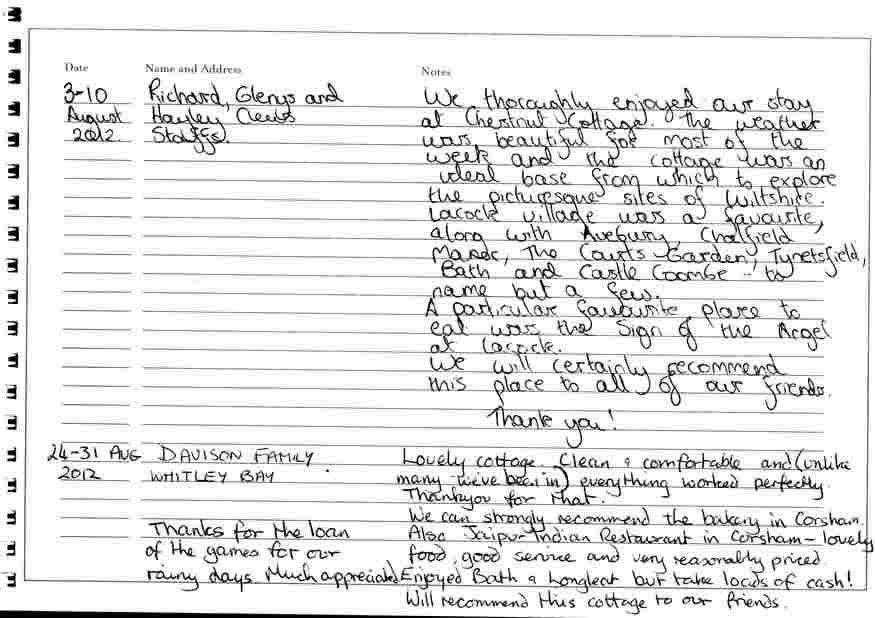 Date Name and Address Notes
3-10 Richard, Glenys and
August Hayley Clews
2012. Staffs.
We thoroughly enjoyed our stay
at Chestnut Cottage. The weather
was beautiful for most of the
week and the cottage was an
ideal base from which to explore
the picturesque sites of Wiltshire.
Lacock village was a favourite,
along with Avebury, Chalfield
Manor, The Courts Garden, Tynetsfield,
Bath and Castle Coombe - to
name but a few.
A particular favourite place to
eat was the Sign of the Angel
at Lacock.
We will certainly recommend
this place to all of our friends.
Thank you!
24-31 AUG DAVISON FAMILY.
2012 WHITLEY BAY
Lovely cottage. Clean & comfortable and (unlike
many we've been in) everything worked perfectly.
Thankyou for that.
We can strongly recommend the bakery in Corsham.
Also Jaipur Indian Restaurant in Corsham - lovely
food, good service and very reasonably priced.
Enjoyed Bath & Longleat but take loads of cash!
Will recommend this cottage to our friends.
Thanks for the loan
of the games for our
rainy days. Much appreciated